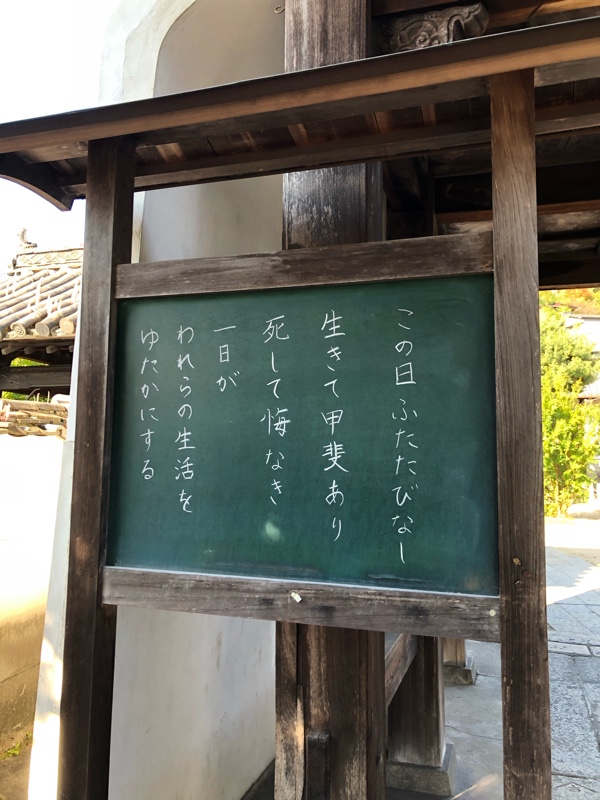 この日ふたたびなし
生きて甲斐あり
死して悔なき
一日が
われらの生活を
ゆたかにする